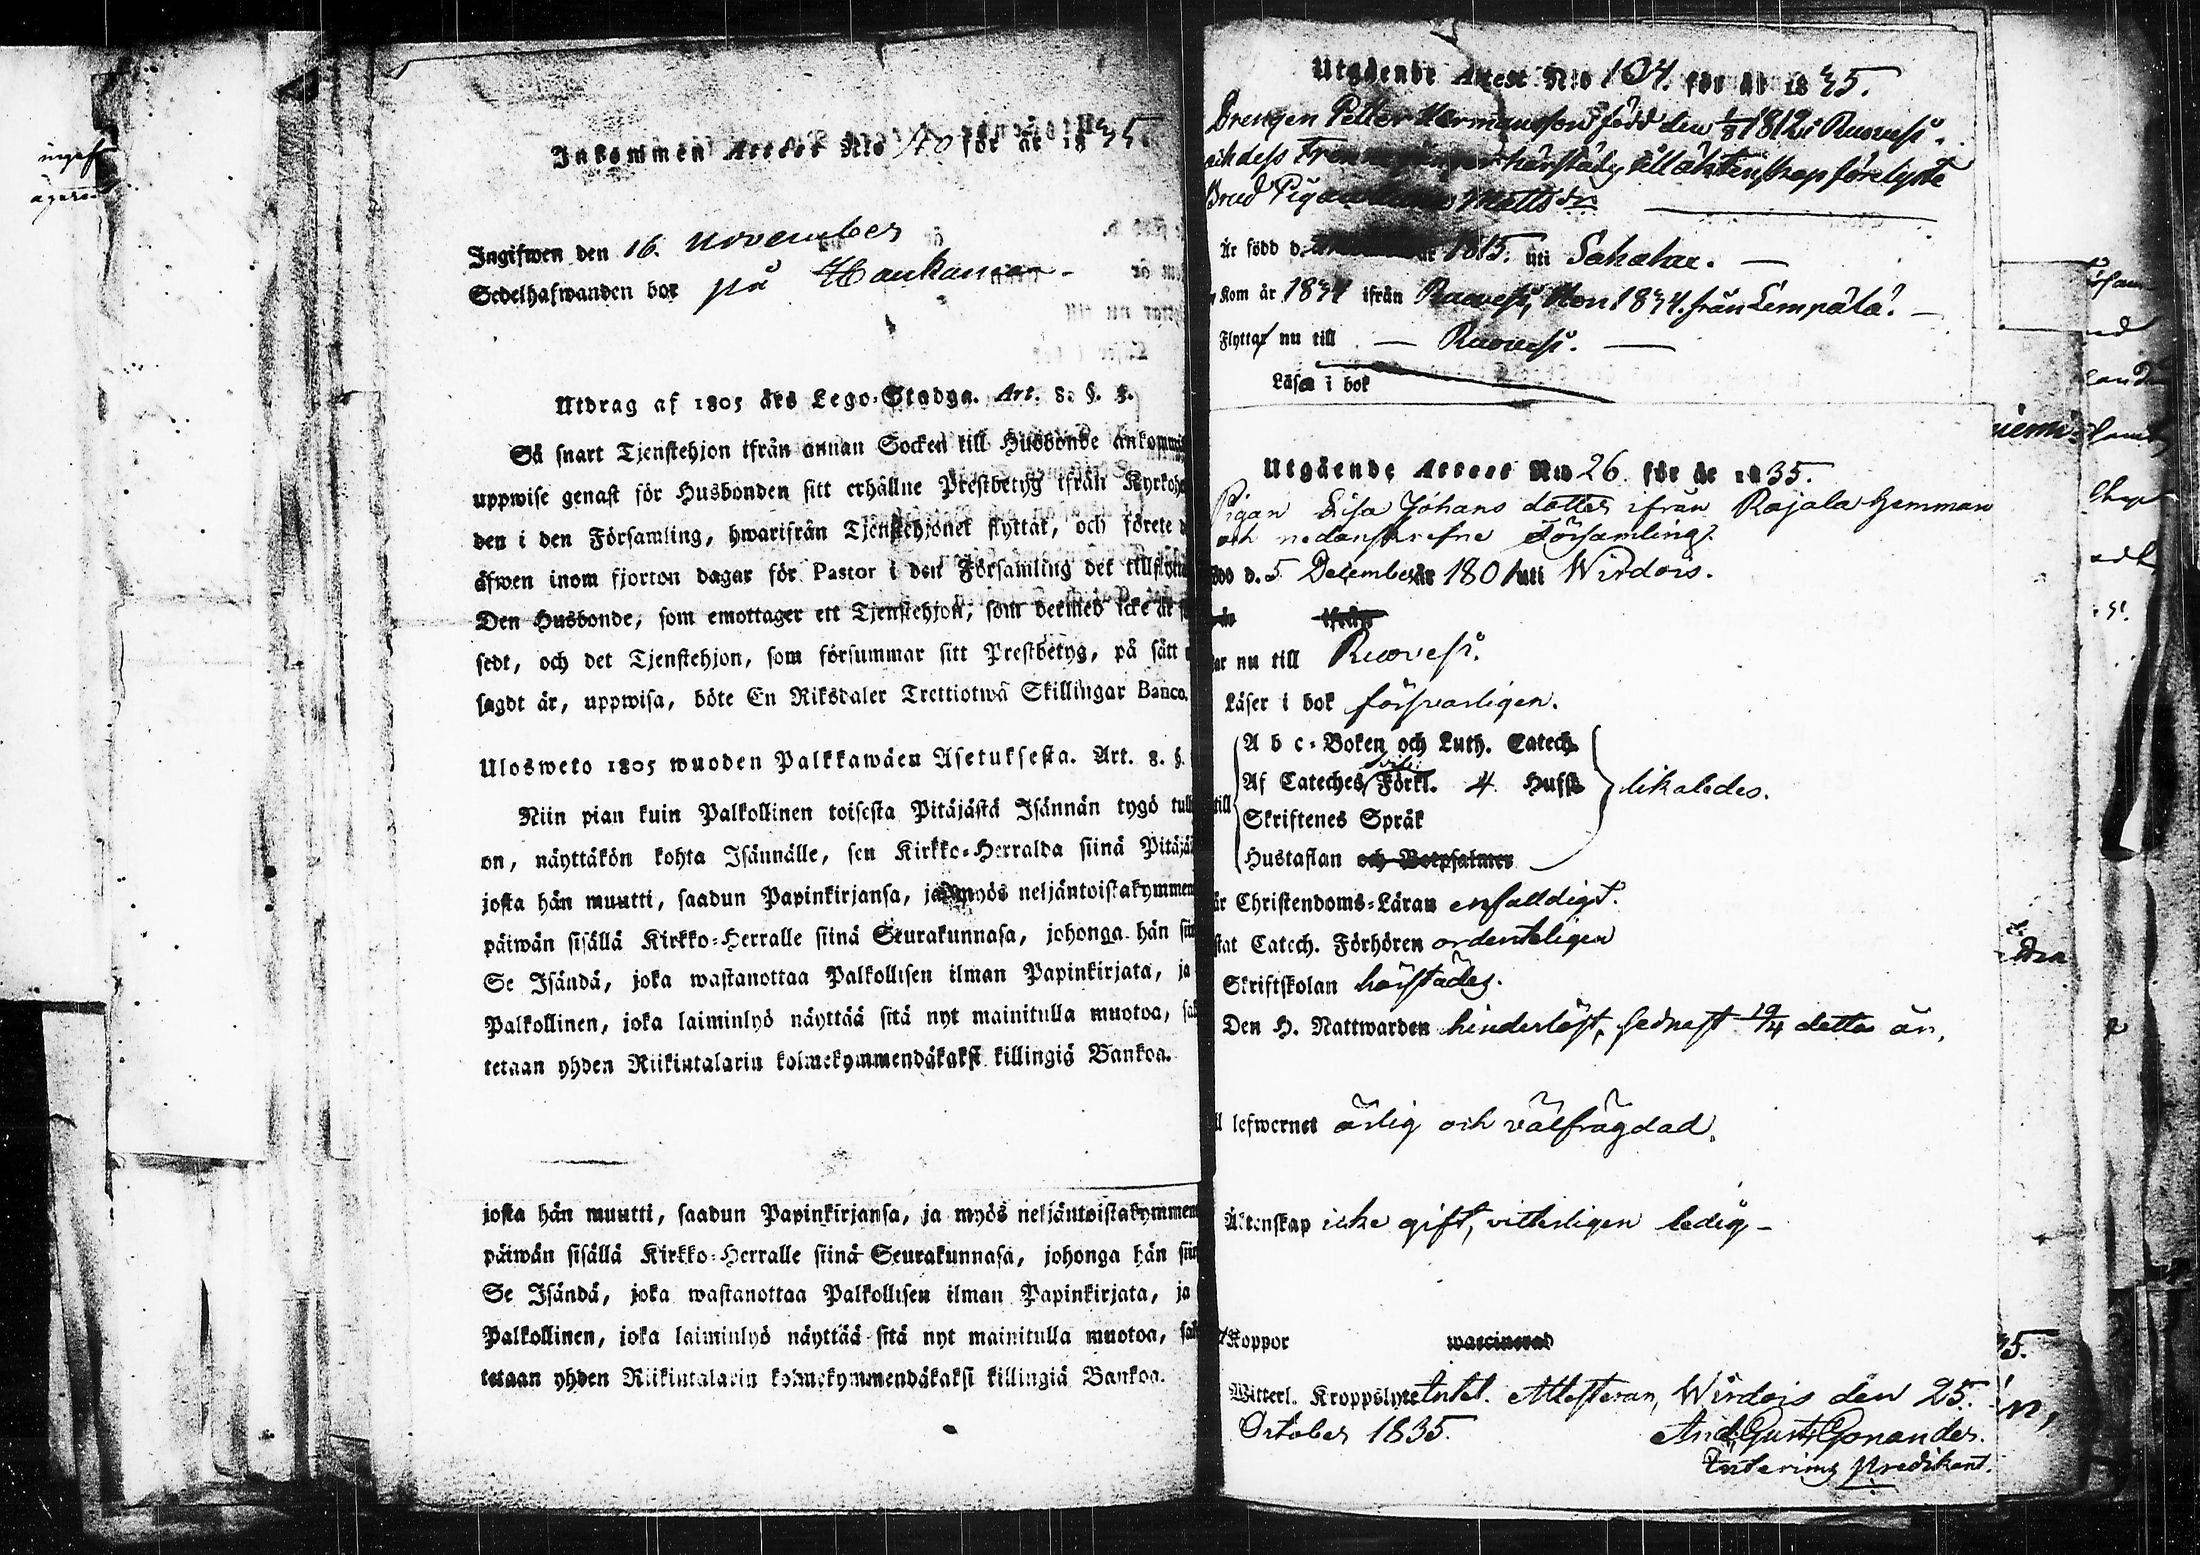 Inkommen Attest N:o för år 1835.
Ingifwen den 16. November
Sedelhafwanden bor på Haukama
Utdrag af 1805 års Lego-Stadga. Art. 8. §. 3.
Så snart Tjenstehjon ifrån annan Socken till Husbonde ankommi
uppwise genast för Husbonden sitt erhållne Prestbetyg ifrån Kyrkohe
den i den Församling, hwarifrån Tjenstehjonet flyttat, och förete
äfwen inom fjorton dagar för Pastor i den Församling det tillflytta
Den Husbonde, som emottager ett Tjenstehjon, som dermed icke är
sedt, och det Tjenstehjon, som försummar sitt Prestbetyg, på sätt
sagdt är, uppwisa, böte En Riksdaler Trettiotwå Skillingar Banco.
Ulosweto 1805 wuoden Palkkawäen Asetuksesta. Art. 8. §.
Niin pian kuin Palkollinen toisesta Pitäjästä Isännän tygö tull
on, näyttäkön kohta Isännälle, sen Kirkko-Herralda siinä Pitäjä
josta hän muutti, saadun Papinkirjansa, ja myös neljäntoistakymmen
päiwän sisällä Kirkko-Herralle siinä Seurakunnasa, johonga hän siir
Se Isändä, joka wastanottaa Palkollisen ilman Papinkirjata, ja
Palkollinen, joka laiminlyö näyttää sitä nyt mainitulla muotoa, sak
tetaan yhden Riikintalarin kolmekymmendäkaksi killingiä Bankoa.
josta hän muutti, saadun Papinkirjansa, ja myös neljäntoistakymmen
päiwän sisällä Kirkko-Herralle siinä Seurakunnasa, johonga hän siir
Se Isändä, joka wastanottaa Palkollisen ilman Papinkirjata, ja
Palkollinen, joka laiminlyö näyttää sitä nyt mainitulla muotoa, sak
tetaan yhden Riikintalarin kolmekymmendäkaksi killingiä Bankoa.
Utgående Attest N:o 104. för år 1835.
Drengen Petter Hermansson född den 1/8 1812 i Ruovesi.
och dess härstädes till äktenskap förelyste
Brud Pigan Mattsdr
Är född d. 1815. uti Sahalax.
Kom år 1834 ifrån Ruovesi, Hon 1834. från Lempälä.
Flyttar nu till Ruovesi.
Läser i bok
Utgående Attest N:o 26. för år 1835.
Pigan Lisa Johans dotter ifrån Rajala hemman
och nedanskrefne Församling.
född d. 5 December år 1801 uti Wirdois.
år ifrån
ar nu till Ruovesi.
Läser i bok försvarligen.
A b c-Boken och Luth. Catech.
Af Cateches Förkl. 4 Hufst. likaledes.
till
Skriftenes Språk
Hustaflan och Botpsalmer
är Christendoms-Läran enfalldigt.
stat Catech. Förhören ordenteligen
Skriftskolan härstädes.
Den H. Nattwarden hinderlöst, sednast 19/4 detta år.
ll lefwernet ärlig och välfrägdad.
Äktenskap icke gift, vitterligen ledig
Koppor waccinerad
Witterl. Kroppslyte Intet. Attesteran, Wirdois den 25.
October 1835. And. Gust. Gonander.
Interims Predikant.